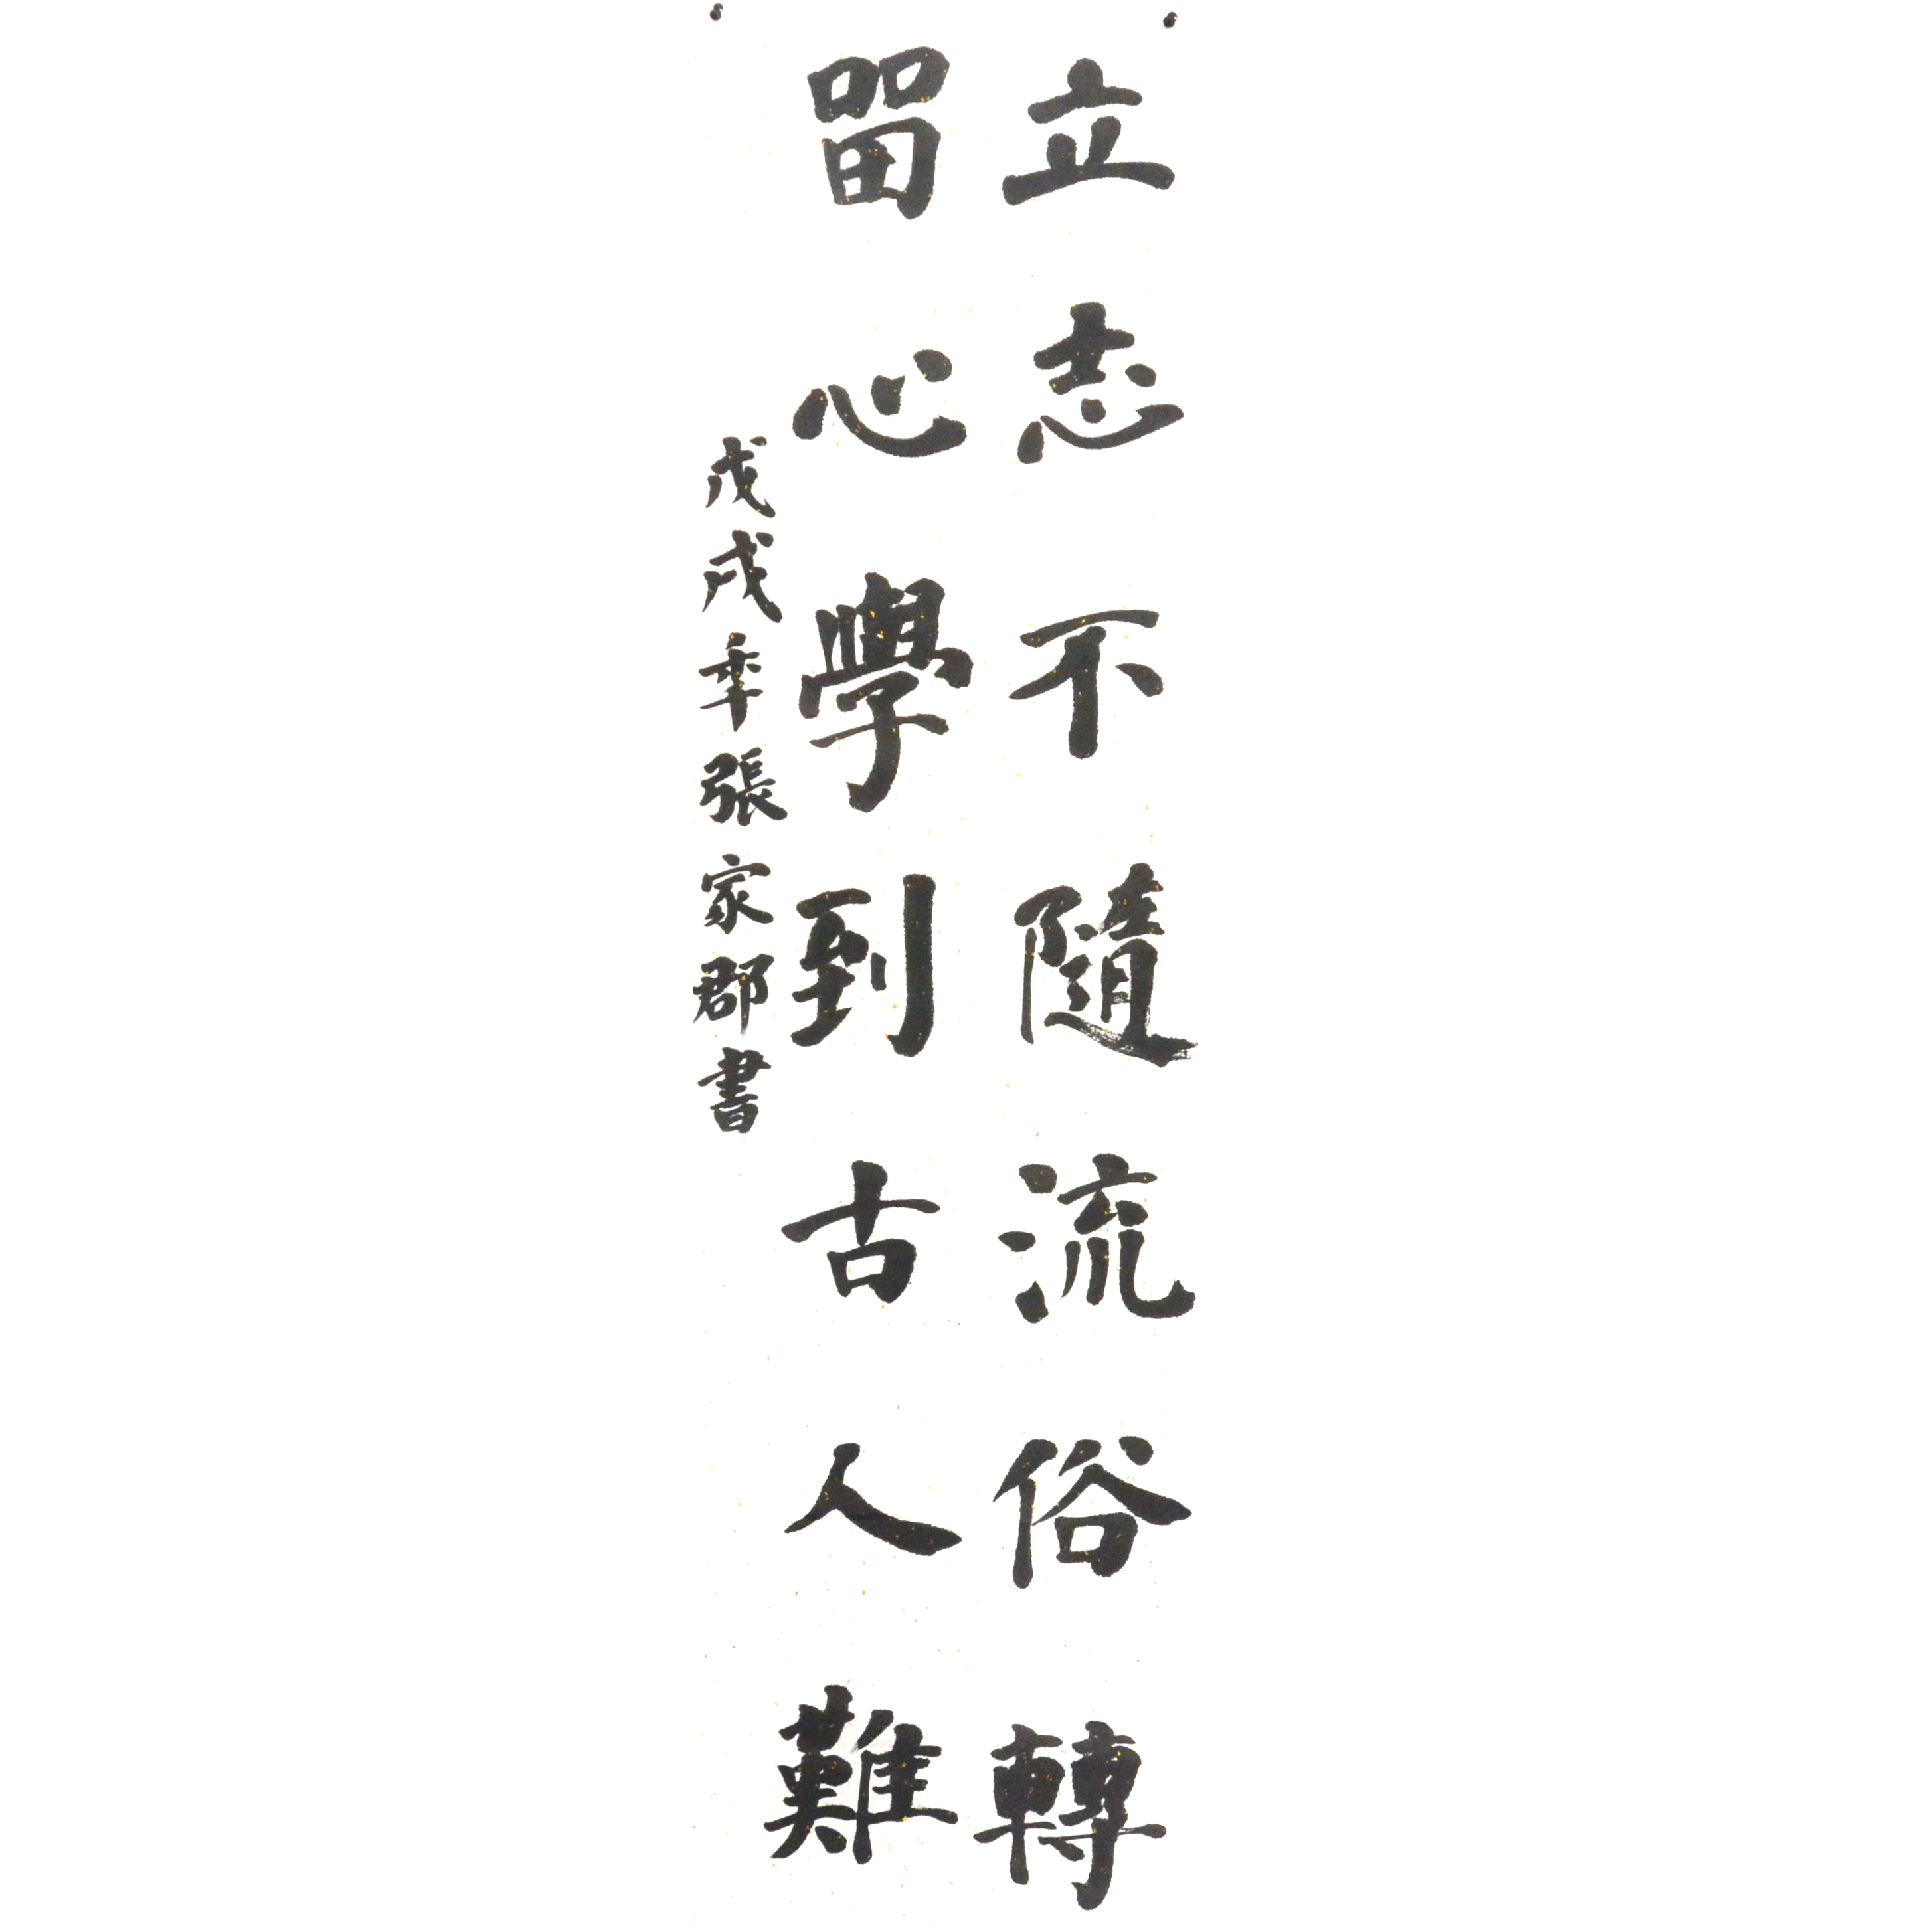 立志不隨流俗轉
留心學到古人難
戊戌年張家郡書